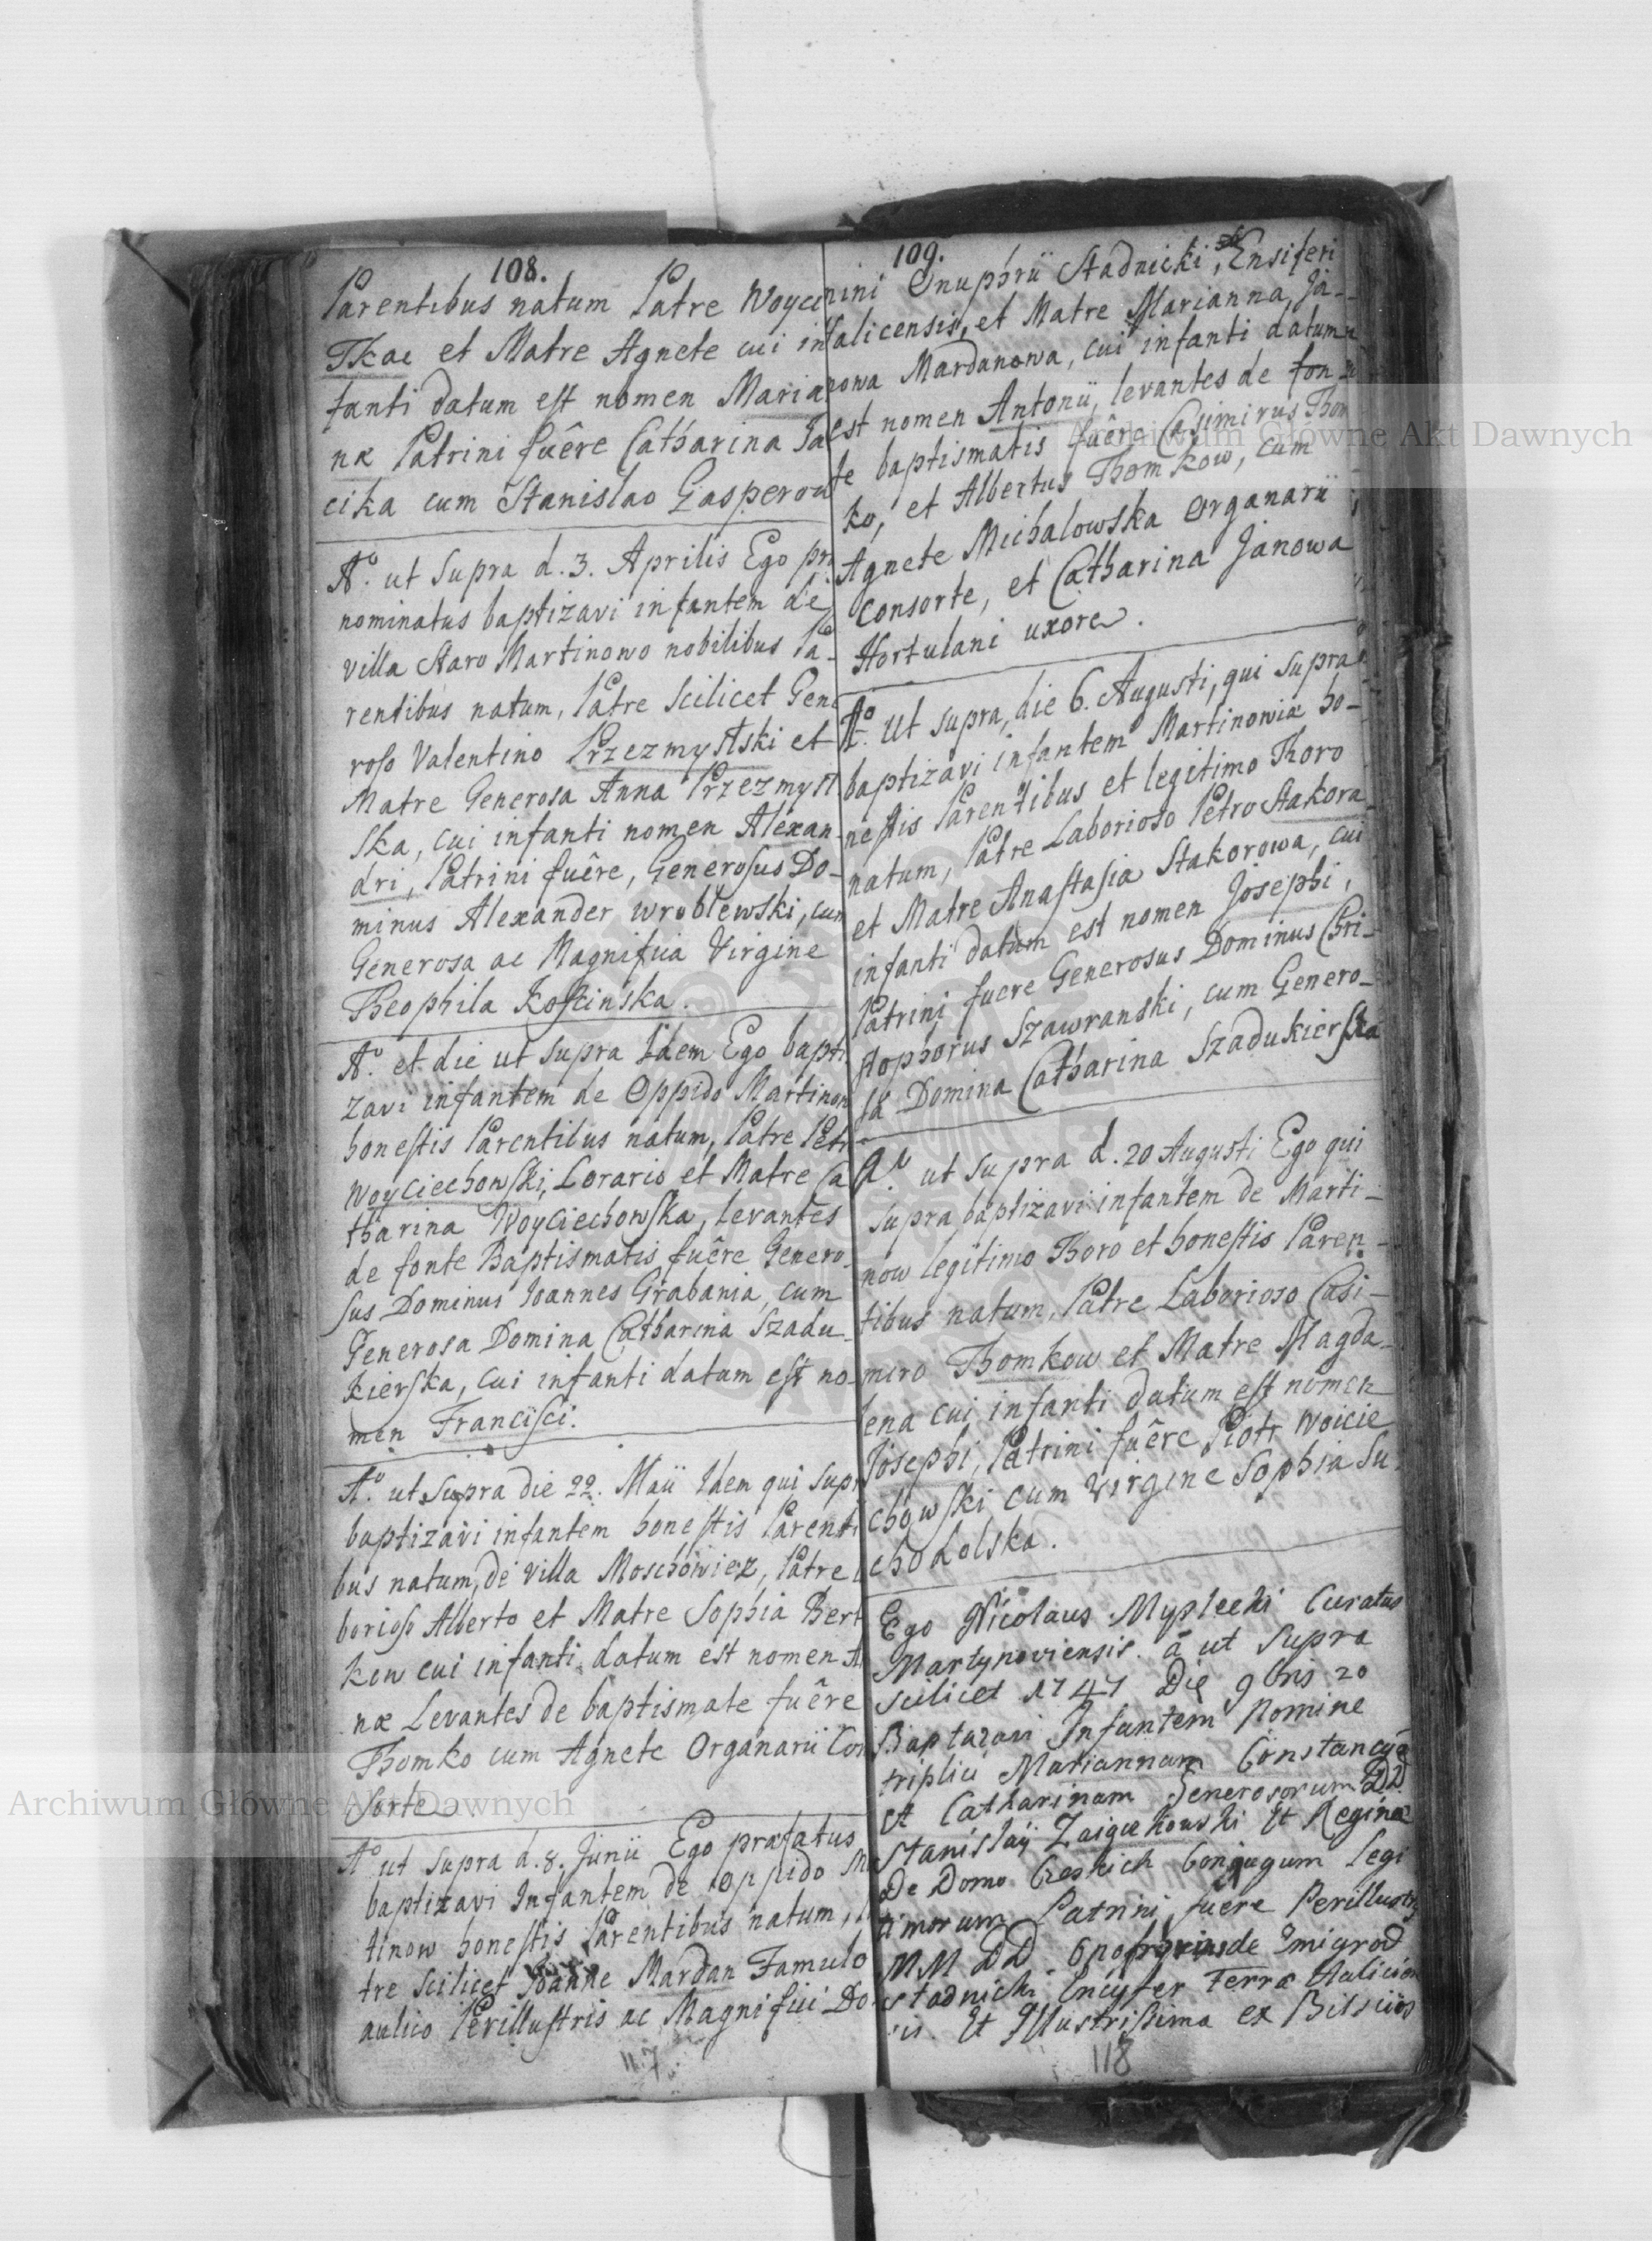 108.
Parentibus natum Patre Woyci
Tkac et Matre Agnete cui in
fanti datum est nomen Maria
næ Patrini fuêre Catharina Ja
cika cum Stanislao Gasperow
Aº. ut supra d. 3. Aprilis Ego pr
nominatus baptizavi infantem de
villa Staro Martinowo nobilibus Pa-
rentibus natum, Patre scilicet Gene
roso Valentino Przezmyslski et
Matre Generosa Anna Przezmysl
ska, cui infanti nomen Alexan-
dri, Patrini fuêre, Generosus Do-
minus Alexander Wroblewski, cum
Generosa ac Magnifica Virgine
Theophila Koscinska.
Aº. et die ut supra Idem Ego bapti
zavi infantem de Oppido Martinow
honestis Parentibus natum, Patre Petr
Woyciechowski, Lorario et Matre Ca
tharina Woyciechowska, levantes
de fonte Baptismatis fuêre Genero-
sus Dominus Joannes Grabania, cum
Generosa Domina Catharina Szadu-
kierska, cui infanti datum est no-
men Francisci.
Aº. ut supra die 22. Maii Idem qui supr
baptizavi infantem honestis Parenti
bus natum, de villa Moschowiez, Patre l
borioso Alberto et Matre Sophia Bert
kow cui infanti datum est nomen A
næ Levantes de baptismate fuêre
Thomko cum Agnete Organarii Con
sorte
Aº ut supra d. 8. Junii Ego præfatus
baptizavi Infantem de Oppido Ma
tinow honestis Parentibus natum,
tre scilicet Joanne Mardan Famulo
aulico Perillustris ac Magnifici Do
117
109.
mini Onuphrii Stadnicki, Ensiferi
Halicensis, et Matre Marianna Ja-
nowa Mardanowa, cui infanti datum
est nomen Antonii, levantes de fon-
te baptismatis fuêre Casimirus Thom
ko, et Albertus Thomkow, cum
Agnete Michalowska Organarii
consorte, et Catharina Janowa
Hortulani uxore.
Aº. Ut supra, die 6. Augusti, qui supra
baptizavi infantem Martinowiæ ho-
nestis Parentibus et legitimo Thoro
natum, Patre Laborioso Petro Stakora
et Matre Anastasia Stakorowa, cui
infanti datum est nomen Josephi,
Patrini fuere Generosus Dominus Chri-
stophorus Szawranski, cum Genero-
sa Domina Catharina Szadukierska
Aº. ut supra d. 20 Augusti Ego qui
supra baptizavi infantem de Marti-
now legitimo Thoro et honestis Paren-
tibus natum, Patre Laborioso Casi-
miro Thomkow et Matre Magda-
lena cui infanti datum est nomen
Josephi, Patrini fuêre Piotr Woicie
chowski cum Virgine Sophia Su-
chodolska.
Ego Nicolaus Myslecki Curatus
Martynoviensis. à ut supra
scilicet 1747 Die 9bris 20
Baptazavi Infantem Nomine
triplici Mariannam Constancyą
et Catharinam Generosorum DD
Stanislaÿ Zaigu kowski Et Reginæ
De Domo Conjugum Legi
timorum Patrini fuere Perillustr
MM DD. de Zmigrod
Stadnicki Encyfer Terræ Halicien
sis. Et Illustrissima ex
118
Archiwum Główne Akt Dawnych
Archiwum Główne Akt Dawnych